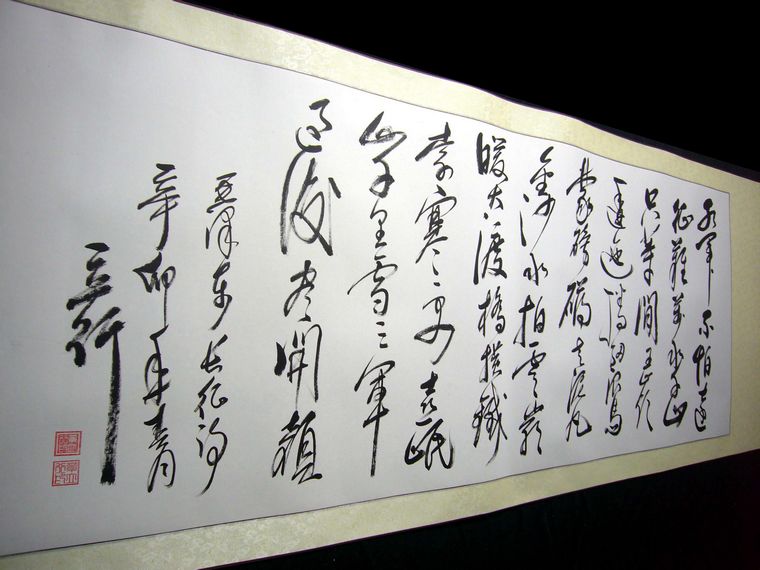 紅軍不怕遠
征難萬水千山
只等閒五嶺
逶迤騰細浪烏
蒙磅礴走泥丸
金沙水拍雲崖
暖大渡橋橫鐵
索寒更喜岷
山千里雪三軍
過後盡開顏
毛澤東長征詩
辛卯年春月